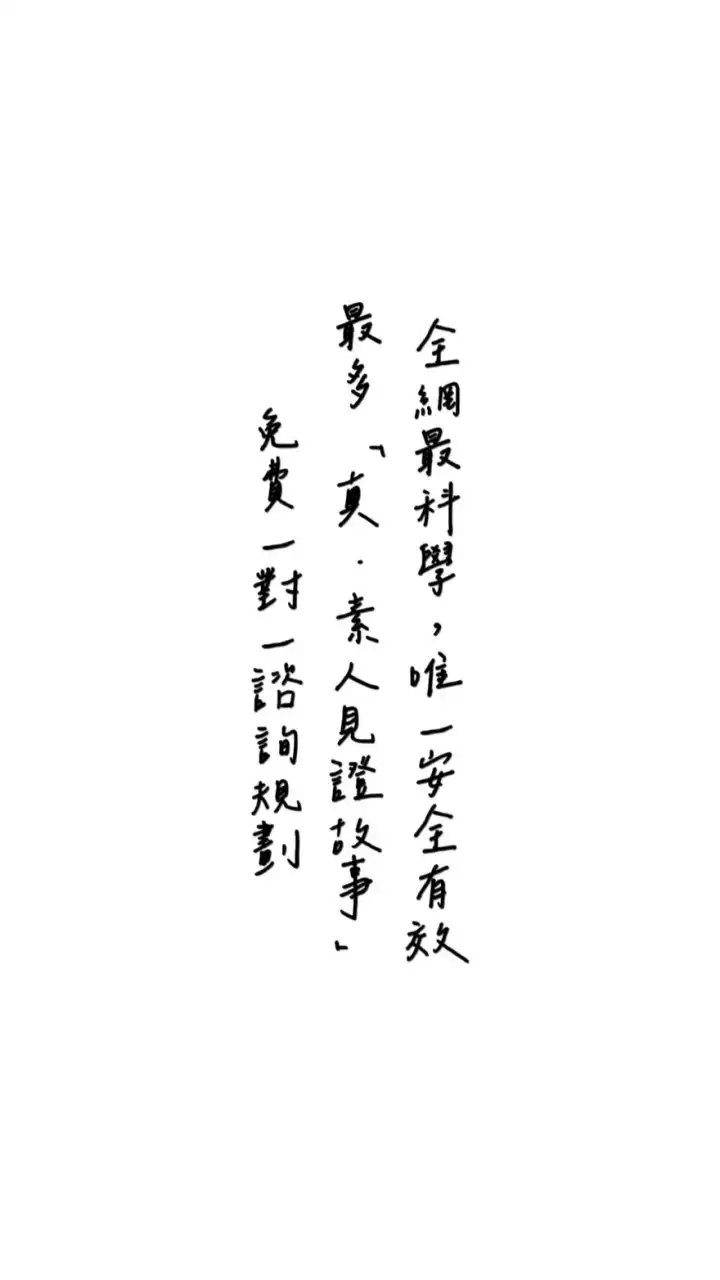 全網最科學，唯一安全有效
最多「真．素人見證故事」
免費一對一諮詢規劃